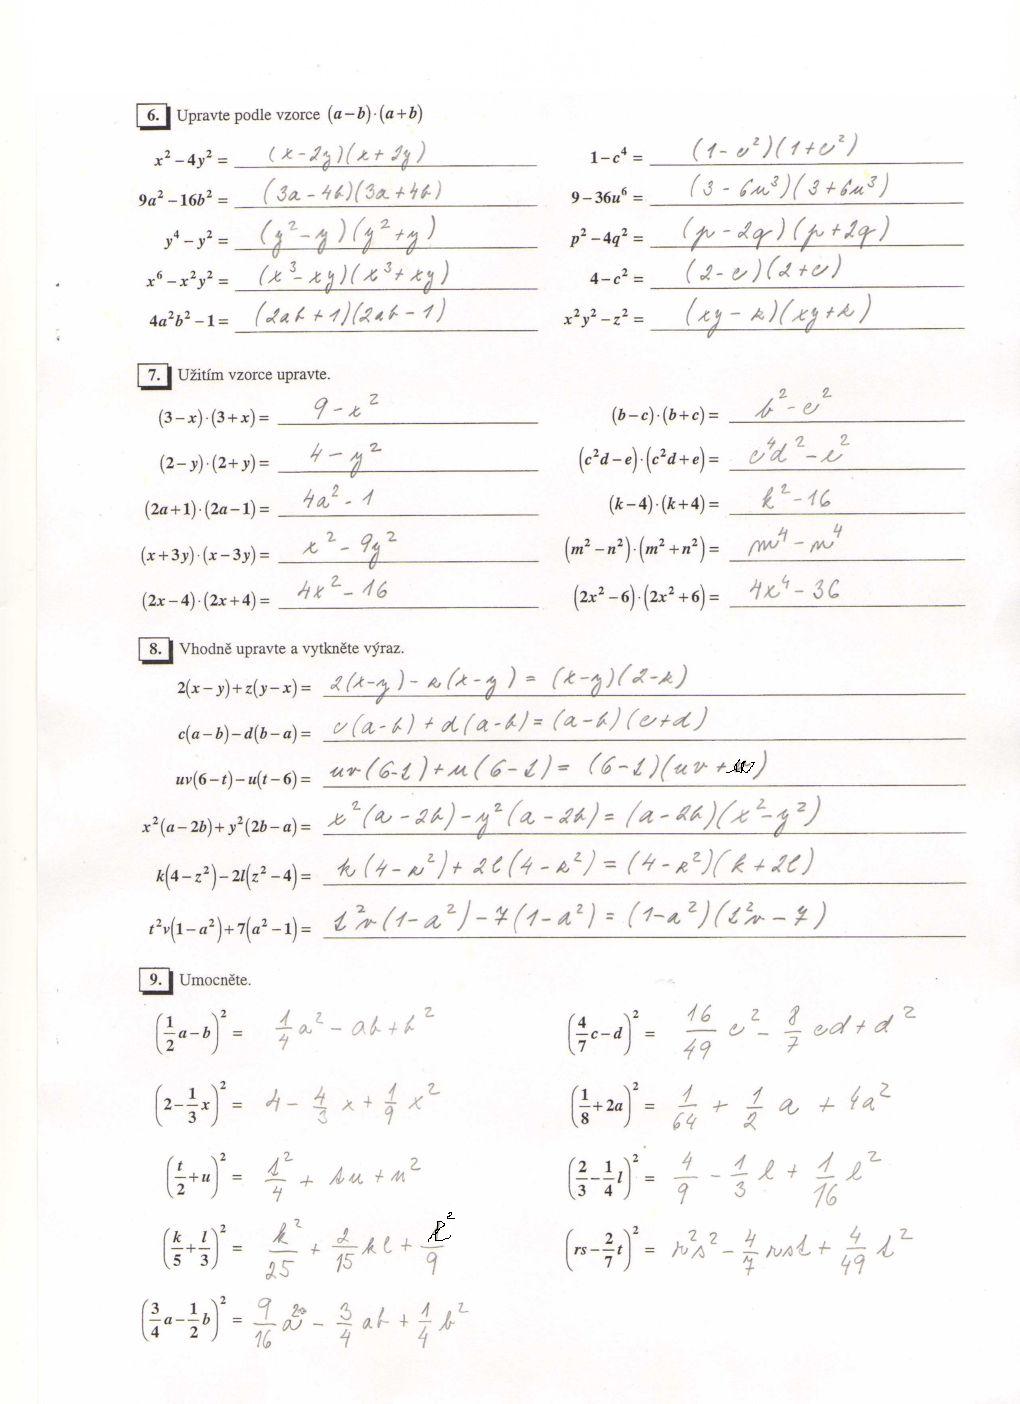 6. Upravte podle vzorce (a−b)·(a+b)
x² − 4y² = (x − 2y)(x + 2y)
1 − c⁴ = (1 − c²)(1 + c²)
9a² − 16b² = (3a − 4b)(3a + 4b)
9 − 36u⁶ = (3 − 6u³)(3 + 6u³)
y⁴ − y² = (y² − y)(y² + y)
p² − 4q² = (p − 2q)(p + 2q)
x⁶ − x²y² = (x³ − xy)(x³ + xy)
4 − c² = (2 − c)(2 + c)
4a²b² − 1 = (2ab + 1)(2ab − 1)
x²y² − z² = (xy − z)(xy + z)
7. Užitím vzorce upravte.
(3 − x)·(3 + x) = 9 − x²
(b − c)·(b + c) = b² − c²
(2 − y)·(2 + y) = 4 − y²
(c²d − e)·(c²d + e) = c⁴d² − e²
(2a + 1)·(2a − 1) = 4a² − 1
(k − 4)·(k + 4) = k² − 16
(x + 3y)·(x − 3y) = x² − 9y²
(m² − n²)·(m² + n²) = m⁴ − n⁴
(2x − 4)·(2x + 4) = 4x² − 16
(2x² − 6)·(2x² + 6) = 4x⁴ − 36
8. Vhodně upravte a vytkněte výraz.
2(x − y) + z(y − x) = 2(x − y) − z(x − y) = (x − y)(2 − z)
c(a − b) − d(b − a) = c(a − b) + d(a − b) = (a − b)(c + d)
uv(6 − t) − u(t − 6) = uv(6 − t) + u(6 − t) = (6 − t)(uv + u)
x²(a − 2b) + y²(2b − a) = x²(a − 2b) − y²(a − 2b) = (a − 2b)(x² − y²)
k(4 − z²) − 2l(z² − 4) = k(4 − z²) + 2l(4 − z²) = (4 − z²)(k + 2l)
t²v(1 − a²) + 7(a² − 1) = t²v(1 − a²) − 7(1 − a²) = (1 − a²)(t²v − 7)
9. Umocněte.
(1/2 a − b)² = 1/4 a² − ab + b²
(4/7 c − d)² = 16/49 c² − 8/7 cd + d²
(2 − 1/3 x)² = 4 − 4/3 x + 1/9 x²
(1/8 + 2a)² = 1/64 + 1/2 a + 4a²
(t/2 + u)² = t²/4 + tu + u²
(2/3 − 1/4 l)² = 4/9 − 1/3 l + 1/16 l²
(k/5 + l/3)² = k²/25 + 2/15 kl + l²/9
(rs − 2/7 t)² = r²s² − 4/7 rst + 4/49 t²
(3/4 a − 1/2 b)² = 9/16 a² − 3/4 ab + 1/4 b²